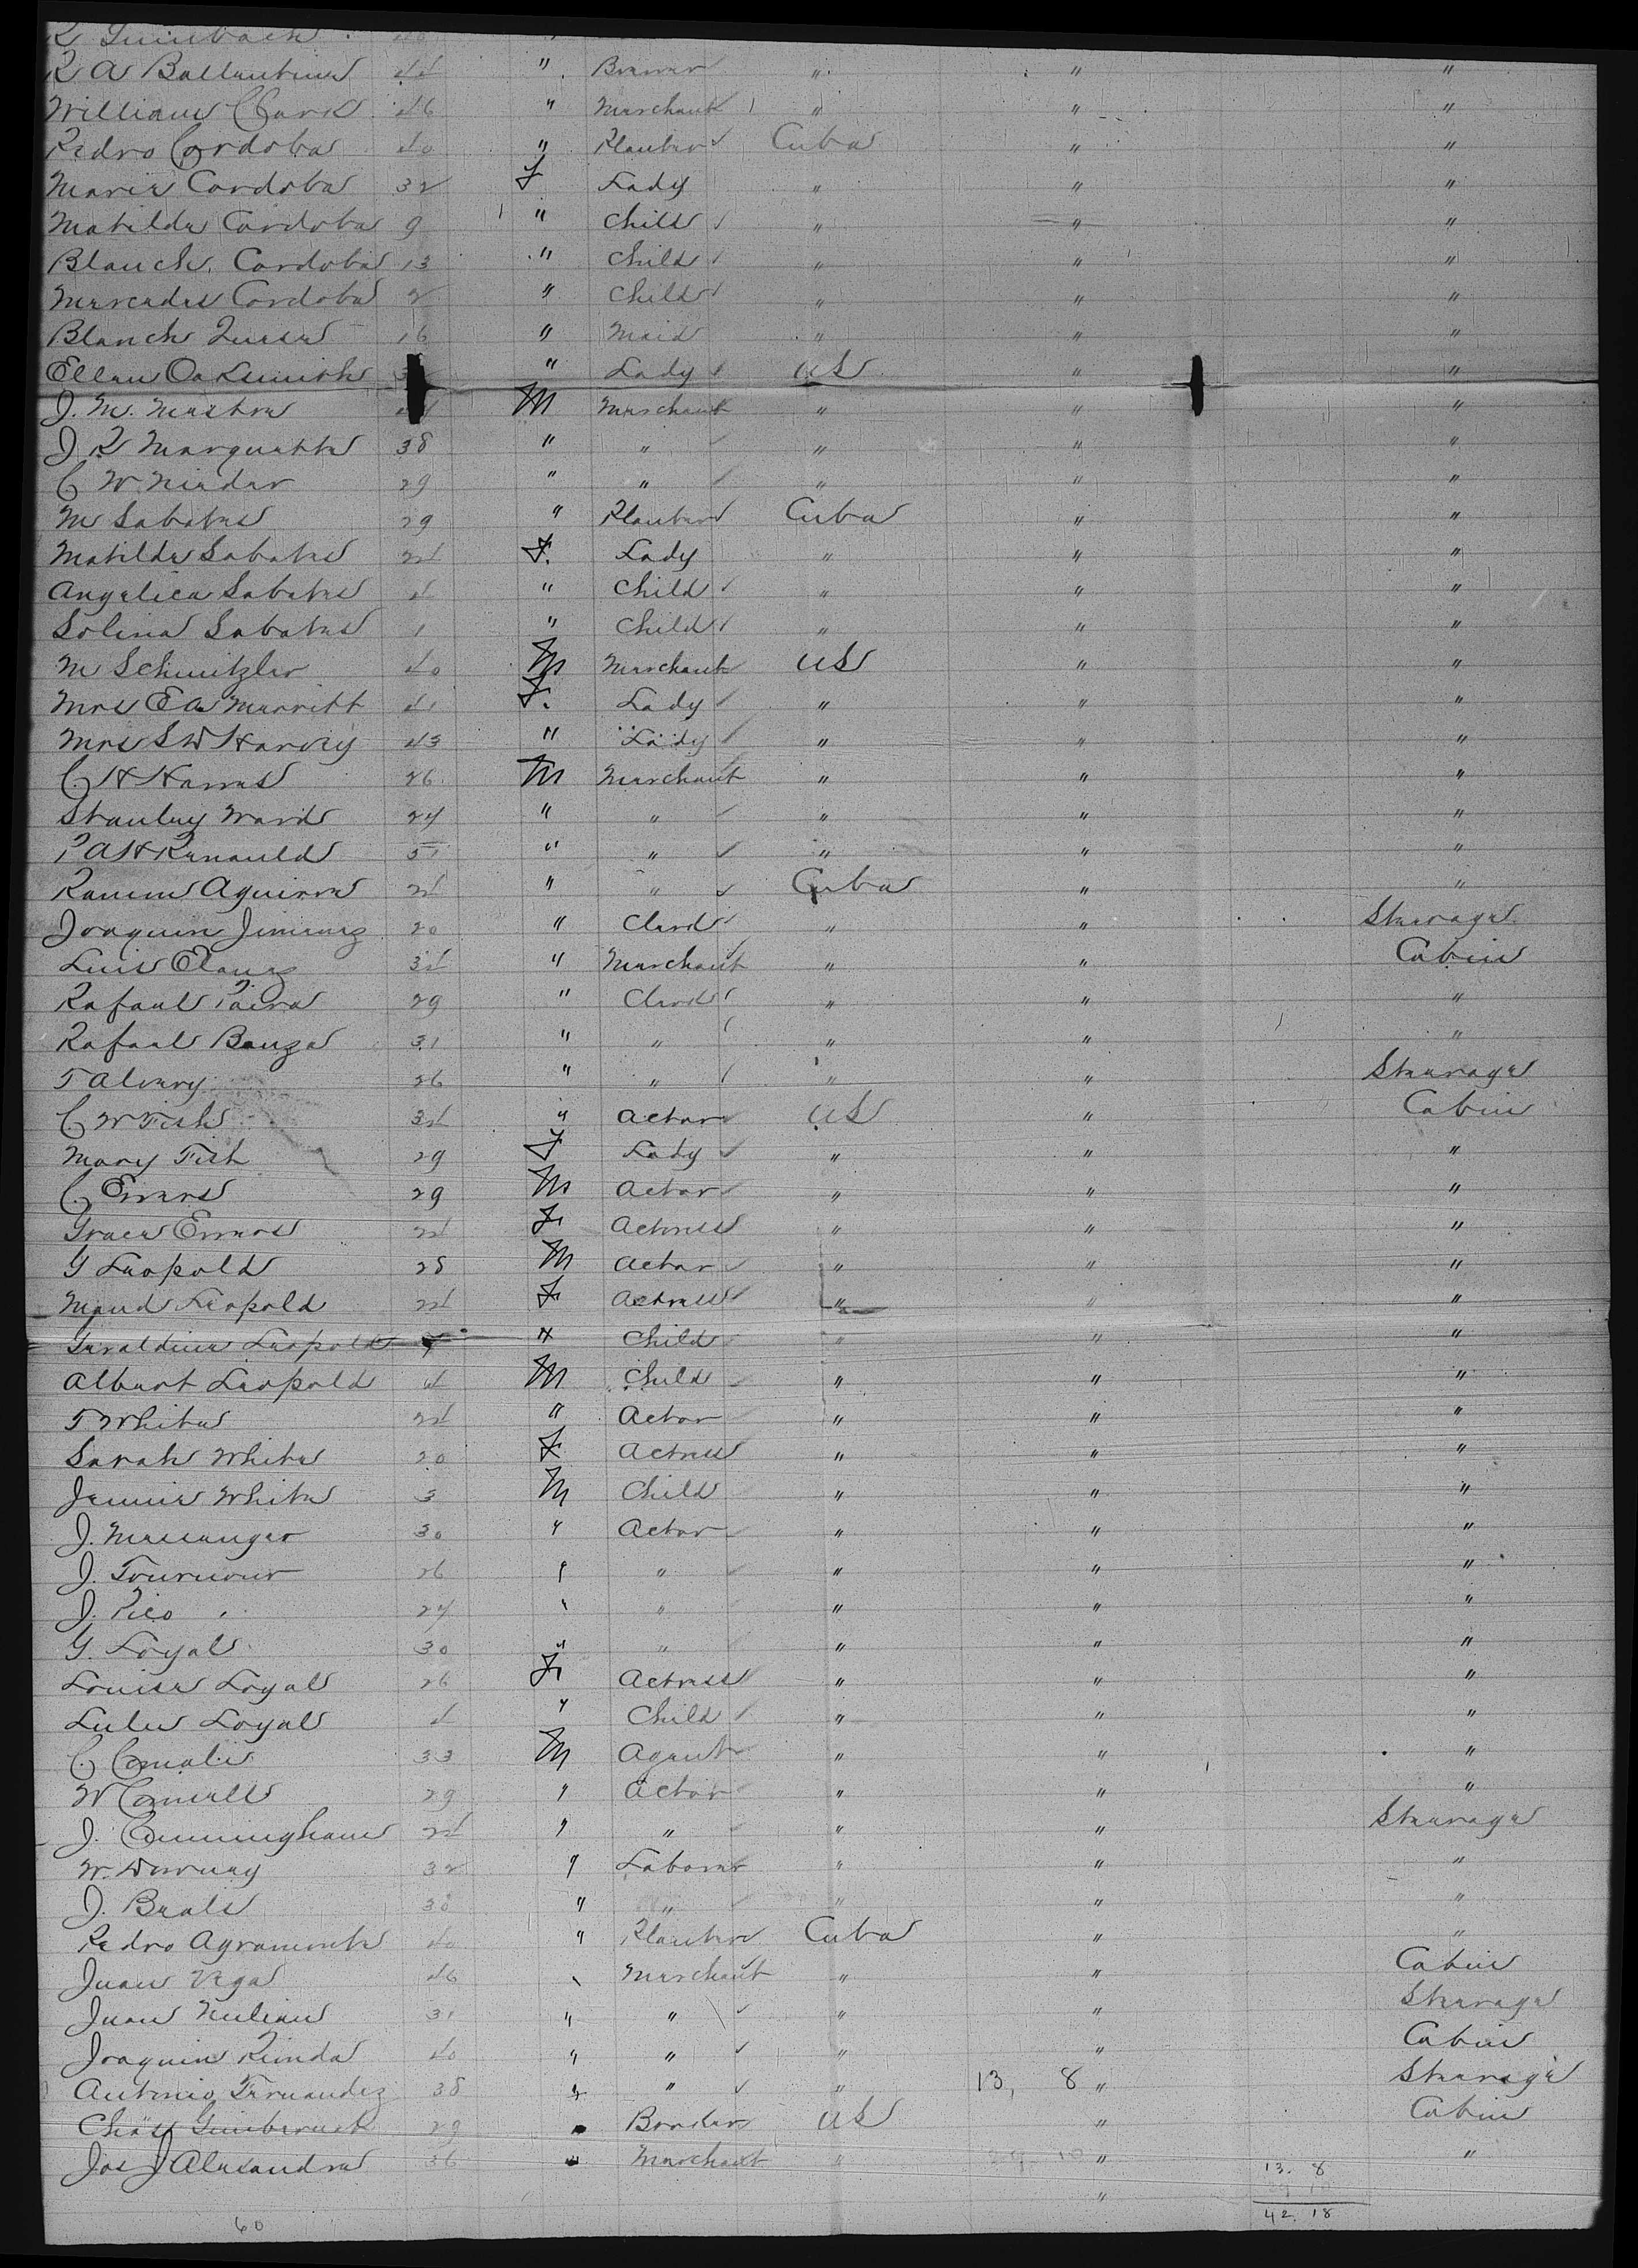 R A Ballantine 44 " Brewer " " "
William Clark 46 " Merchant " " "
Pedro Cordoba 40 " Planter Cuba " "
Maria Cordoba 32 F Lady " " "
Matilda Cordoba 9 " Child " " "
Blanch Cordoba 13 " Child " " "
Mercedes Cordoba 2 " Child " " "
Blanch 16 " Maid " " "
Ellen Oaksmith " Lady US " "
J. M. M Merchant " " "
J R Marquette 38 " " " " "
C W Nieder 29 " " " " "
M Sabates 29 " Planter Cuba " "
Matilda Sabates 24 F. Lady " " "
Angelica Sabates 4 " Child " " "
Solina Sabates 1 " Child " " "
M Schnitzler 40 M Merchant US " "
Mrs E A Merritt 41 F. Lady " " "
Mrs S W Harvey 43 " Lady " " "
C. H Harris 26 M Merchant " " "
Stanley Ward 24 " " " " "
P A H Renauld 51 " " " " "
Ramon Aguirre 24 " " Cuba " "
Joaquin Jimenez 20 " Clerk " " Steerage
Luis 34 " Merchant " " Cabin
Rafael 29 " Clerk " " "
Rafael Banza 31 " " " " "
T Alvarez 26 " " " " Steerage
C W Fish 34 " Actor US " Cabin
Mary Fish 29 F Lady " " "
C. Evers 29 M Actor " " "
Grace Evers 24 F Actress " " "
G Leopold 28 M Actor " " "
Maud Leopold 24 F Actress " " "
Geraldine Leopold 7 " Child " " "
Albert Leopold 4 M Child " " "
T White 24 " Actor " " "
Sarah White 20 F Actress " " "
Jennie White 3 M Child " " "
J. Messenger 30 " Actor " " "
J. Tournour 26 " " " " "
J. Pico 24 " " " " "
G. Loyal 30 " " " " "
Louise Loyal 26 F Actress " " "
Lulu Loyal 4 " Child " " "
C. 33 M Agent " " "
W Connell 29 " Actor " " "
J. Cunningham 24 " " " " Steerage
W. Downey 32 " Laborer " " "
J. Beals 30 " " " " "
Pedro Agramonte 40 " Planter Cuba " "
Juan Vega 46 " Merchant " " Cabin
Juan 31 " " " " Steerage
Joaquin 40 " " " " Cabin
Antonio Fernandez 38 " " " 13, 8 " Steerage
Chas 29 " US " Cabin
Jos J Alexandre 36 " Merchant " 29 10 " "
" 13. 8
42. 18
60